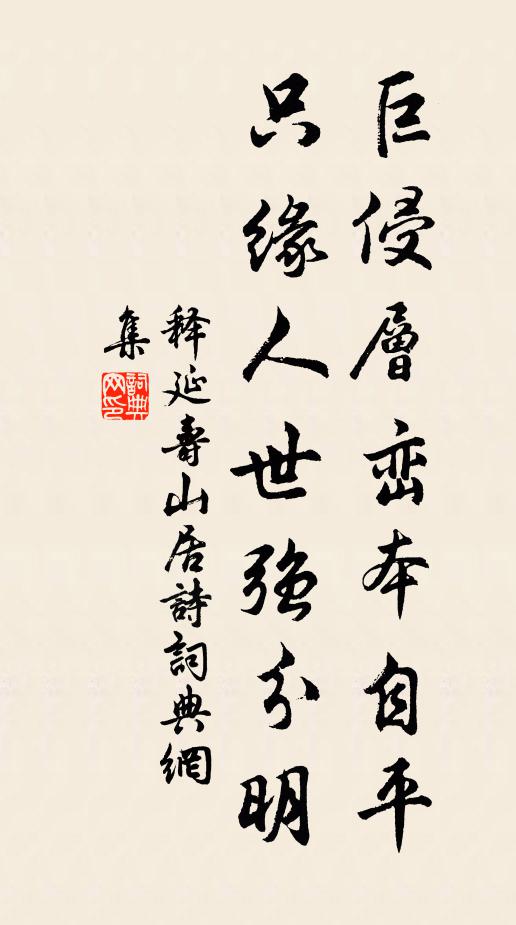 巨侵層峦本自平
只缘人世强分明
释延壽山居詩詞典網
集
詞典网印